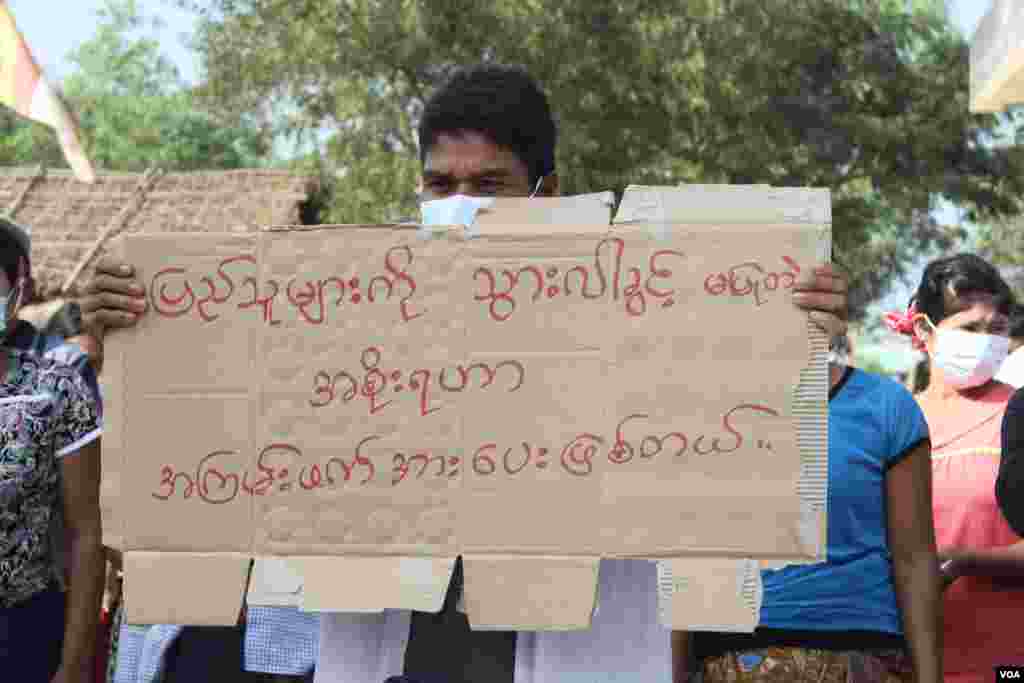 ပြည်သူများကို သွားလါခွင့် မပြုတဲ့
အစိုးရဟာ
အကြမ်းဖက် အားပေး ဖြစ်တယ်။
VOA